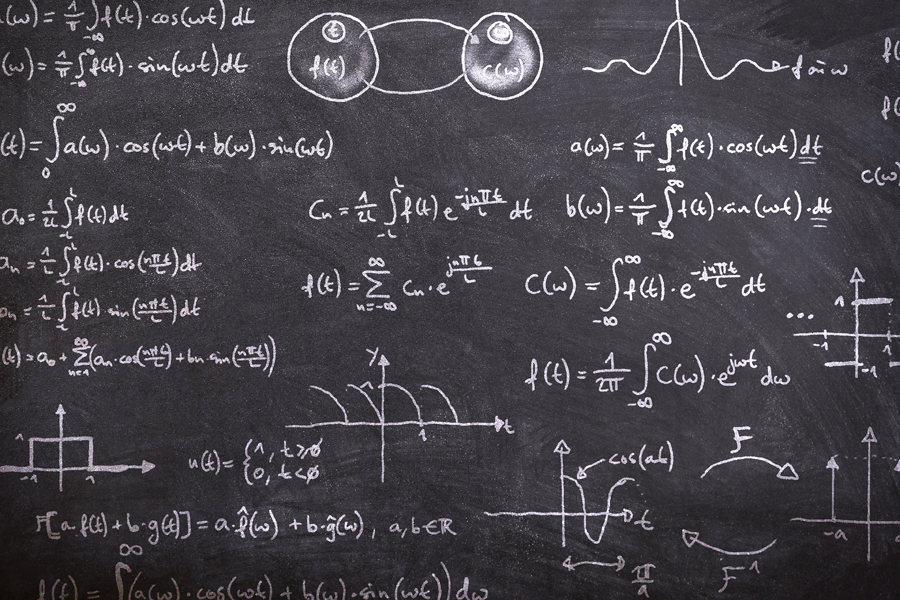 a(ω) = 1/π ∫_{-∞} f(t)·cos(ωt) dt
(ω) = 1/π ∫_{-∞}^{∞} f(t)·sin(ωt) dt
f(t)
c(ω)
f sin ω
(t) = ∫_0^∞ a(ω)·cos(ωt) + b(ω)·sin(ωt)
a(ω) = 1/π ∫_{-∞}^{∞} f(t)·cos(ωt) dt
c(ω)
a₀ = 1/2L ∫_{-L}^{L} f(t) dt
Cn = 1/2L ∫_{-L}^{L} f(t) e^{-jnπt/L} dt
b(ω) = 1/π ∫_{-∞}^{∞} f(t)·sin(ωt)·dt
an = 1/L ∫_{-L}^{L} f(t)·cos(nπt/L) dt
f(t) = ∑_{n=-∞}^{∞} Cn·e^{jnπt/L}
C(ω) = ∫_{-∞}^{∞} f(t)·e^{-jnπt/L} dt
bn = 1/L ∫_{-L}^{L} f(t)·sin(nπt/L) dt
... -1 1 1 -1
(t) = a₀ + ∑_{n=1}^{∞} (an·cos(nπt/L) + bn·sin(nπt/L))
f(t) = 1/2π ∫_{-∞}^{∞} C(ω)·e^{jωt} dω
y 1 1 t
1 -1 1
u(t) = {1, t≥0
0, t<0
cos(at)
t
π/a
F
F^-1
-a
F[a·f(t) + b·g(t)] = a·f̂(ω) + b·ĝ(ω), a,b∈ℝ
f(t) = ∫^∞ (a(ω)·cos(ωt) + b(ω)·sin(ωt)) dω